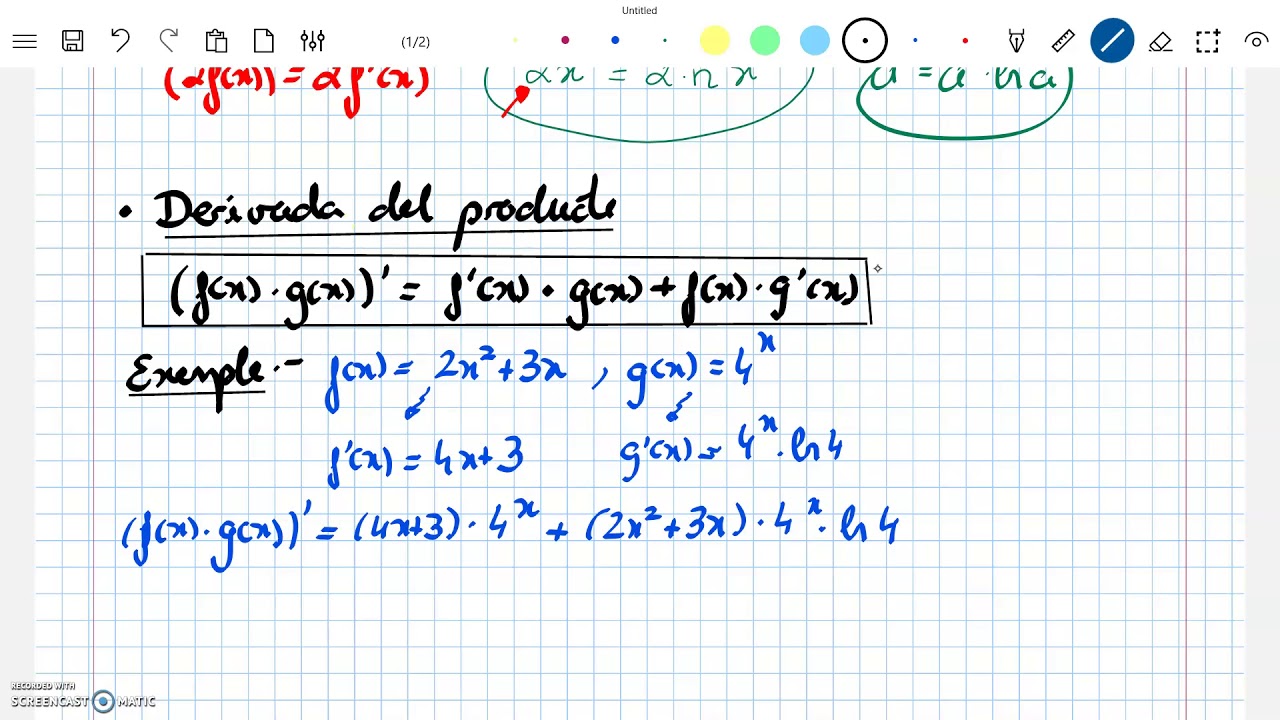 Untitled
(1/2)
(2f(x))' = 2f'(x)
• Derivada del producte
(f(x)·g(x))' = f'(x)·g(x) + f(x)·g'(x)
Exemple.- f(x) = 2x² + 3x , g(x) = 4ˣ
f'(x) = 4x+3 g'(x) = 4ˣ·ln4
(f(x)·g(x))' = (4x+3)·4ˣ + (2x²+3x)·4ˣ·ln4
RECORDED WITH
SCREENCAST MATIC